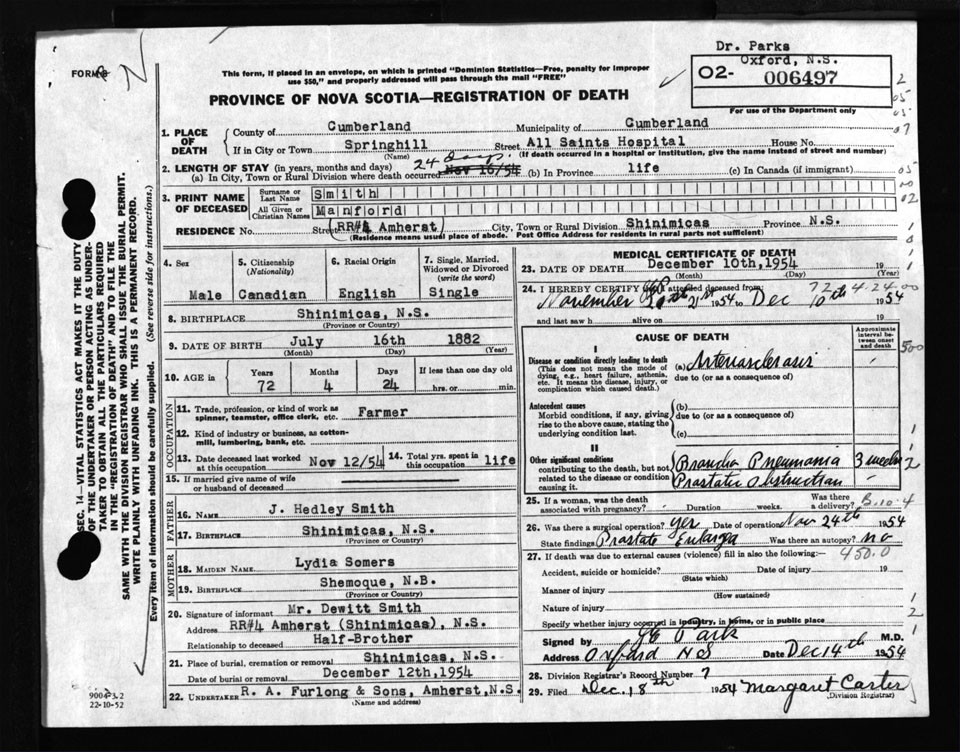 Dr. Parks
Oxford, N.S.
FORM 6
N
This form, if placed in an envelope, on which is printed "Dominion Statistics—Free, penalty for improper
use $50," and properly addressed will pass through the mail "FREE"
O2- 006497
For use of the Department only
PROVINCE OF NOVA SCOTIA—REGISTRATION OF DEATH
2
05
05
07
1. PLACE OF DEATH
County of Cumberland Municipality of Cumberland
If in City or Town Springhill Street All Saints Hospital House No.
(Name) (If death occurred in a hospital or institution, give the name instead of street and number)
2. LENGTH OF STAY (in years, months and days) 24 days.
(a) In City, Town or Rural Division where death occurred Nov 16/54 (b) In Province life (c) In Canada (if immigrant)
05
00
02
3. PRINT NAME OF DECEASED
Surname or Last Name Smith
All Given or Christian Names Manford
RESIDENCE No. Street RR#4 Amherst City, Town or Rural Division Shinimicas Province N.S.
(Residence means usual place of abode. Post Office Address for residents in rural parts not sufficient)
4. Sex Male
5. Citizenship (Nationality) Canadian
6. Racial Origin English
7. Single, Married, Widowed or Divorced (write the word) Single
8. BIRTHPLACE Shinimicas, N.S.
(Province or Country)
9. DATE OF BIRTH July 16th 1882
(Month) (Day) (Year)
10. AGE in Years 72 Months 4 Days 24 If less than one day old hrs. or min.
OCCUPATION
11. Trade, profession, or kind of work as spinner, teamster, office clerk, etc. Farmer
12. Kind of industry or business, as cotton-mill, lumbering, bank, etc.
13. Date deceased last worked at this occupation Nov 12/54
14. Total yrs. spent in this occupation life
15. If married give name of wife or husband of deceased
FATHER
16. NAME J. Hedley Smith
17. BIRTHPLACE Shinimicas, N.S.
(Province or Country)
MOTHER
18. MAIDEN NAME Lydia Somers
19. BIRTHPLACE Shemoque, N.B.
(Province or Country)
20. Signature of informant Mr. Dewitt Smith
Address RR#4 Amherst (Shinimicas), N.S.
Relationship to deceased Half-Brother
21. Place of burial, cremation or removal Shinimicas, N.S.
Date of burial or removal December 12th, 1954
22. UNDERTAKER R. A. Furlong & Sons, Amherst, N.S.
(Name and address)
MEDICAL CERTIFICATE OF DEATH
23. DATE OF DEATH December 10th, 1954 19
(Month) (Day) (Year)
72 4-24-00
24. I HEREBY CERTIFY attended deceased from
November 21st 1954 to Dec 10th 1954
and last saw h alive on 19
CAUSE OF DEATH
Approximate interval between onset and death
I
Disease or condition directly leading to death
(This does not mean the mode of dying, e.g., heart failure, asthenia, etc. It means the disease, injury, or complication which caused death.)
(a) Arteriosclerosis
due to (or as a consequence of)
500
Antecedent causes
Morbid conditions, if any, giving rise to the above cause, stating the underlying condition last.
(b)
due to (or as a consequence of)
(c)
II
Other significant conditions contributing to the death, but not related to the disease or condition causing it.
Broncho Pneumonia 3 weeks
Prostatic Obstruction
25. If a woman, was the death associated with pregnancy? Duration weeks. Was there a delivery?
26. Was there a surgical operation? yes Date of operation Nov 24th 1954
State findings Prostate Enlarged Was there an autopsy? no
450.0
27. If death was due to external causes (violence) fill in also the following:—
Accident, suicide or homicide? Date of injury 19
(State which)
Manner of injury
(How sustained)
Nature of injury
Specify whether injury occurred in industry, in home, or in public place
Signed by Park M.D.
Address Oxford NS Date Dec 14th 1954
28. Division Registrar's Record Number 7
29. Filed Dec. 18th 1954 Margaret Carter
(Division Registrar)
SEC. 14—VITAL STATISTICS ACT MAKES IT THE DUTY
OF THE UNDERTAKER OR PERSON ACTING AS UNDER-
TAKER TO OBTAIN ALL THE PARTICULARS REQUIRED
IN THE "REGISTRATION OF DEATH" AND TO FILE THE
SAME WITH THE DIVISION REGISTRAR WHO SHALL ISSUE THE BURIAL PERMIT.
WRITE PLAINLY WITH UNFADING INK. THIS IS A PERMANENT RECORD.
Every item of information should be carefully supplied. (See reverse side for instructions.)
9004-3.2
22-10-52